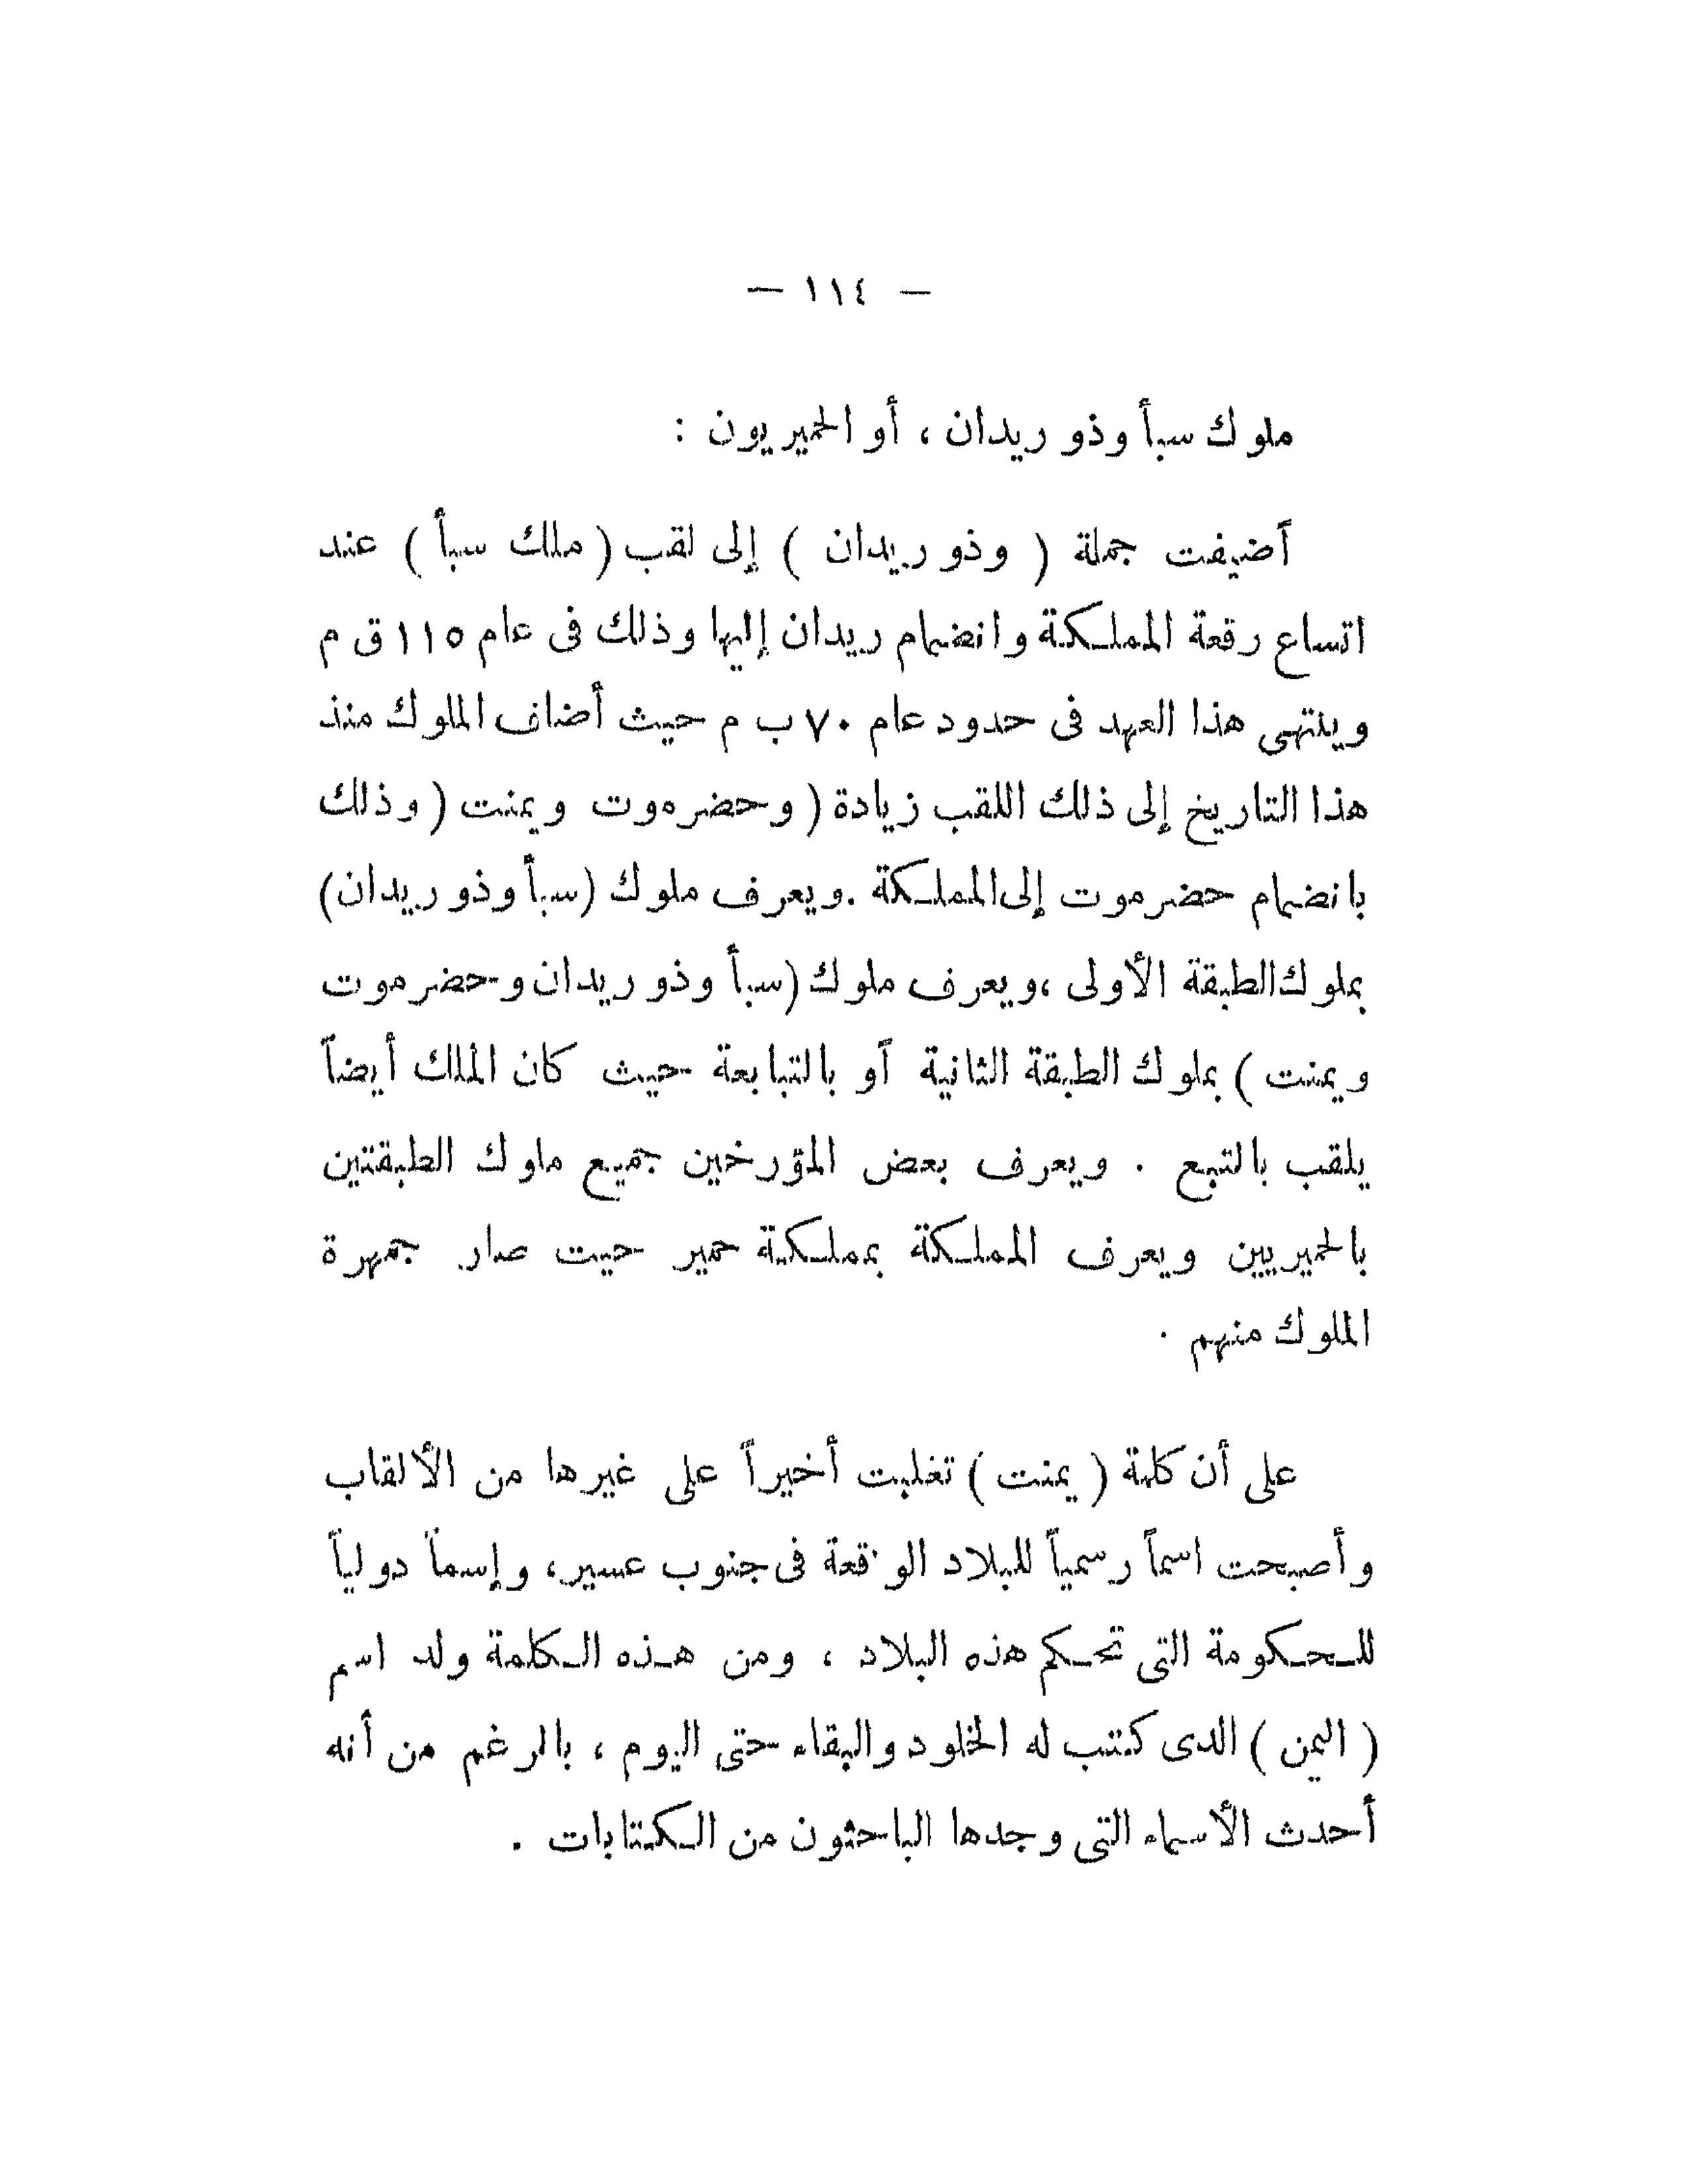 — ١١٤ —
ملوك سبأ وذو ريدان ، أو الحميريون :
أضيفت جملة ( وذو ريدان ) إلى لقب ( ملك سبأ ) عند
اتساع رقعة المملكة وانضمام ريدان إليها وذلك فى عام ١١٥ ق م
وينتهى هذا العهد فى حدود عام ٧٠ ب م حيث أضاف الملوك منذ
هذا التاريخ إلى ذلك اللقب زيادة ( وحضرموت ويمنت ( وذلك
بانضمام حضرموت إلى المملكة . ويعرف ملوك (سبأ وذو ريدان)
بملوك الطبقة الأولى ، ويعرف ملوك (سبأ وذو ريدان وحضرموت
ويمنت ) بملوك الطبقة الثانية أو بالتبابعة حيث كان الملك أيضاً
يلقب بالتبع . ويعرف بعض المؤرخين جميع ملوك الطبقتين
بالحميريين ويعرف المملكة بمملكة حمير حيت صار جمهرة
الملوك منهم .
على أن كلمة ( يمنت ) تغلبت أخيراً على غيرها من الألقاب
وأصبحت اسماً رسمياً للبلاد الواقعة فى جنوب عسير، وإسماً دولياً
للحكومة التى تحكم هذه البلاد ، ومن هذه الكلمة ولد اسم
( اليمن ) الدى كتب له الخلود والبقاء حتى اليوم ، بالرغم من أنه
أحدث الأسماء التى وجدها الباحثون من الكتابات .